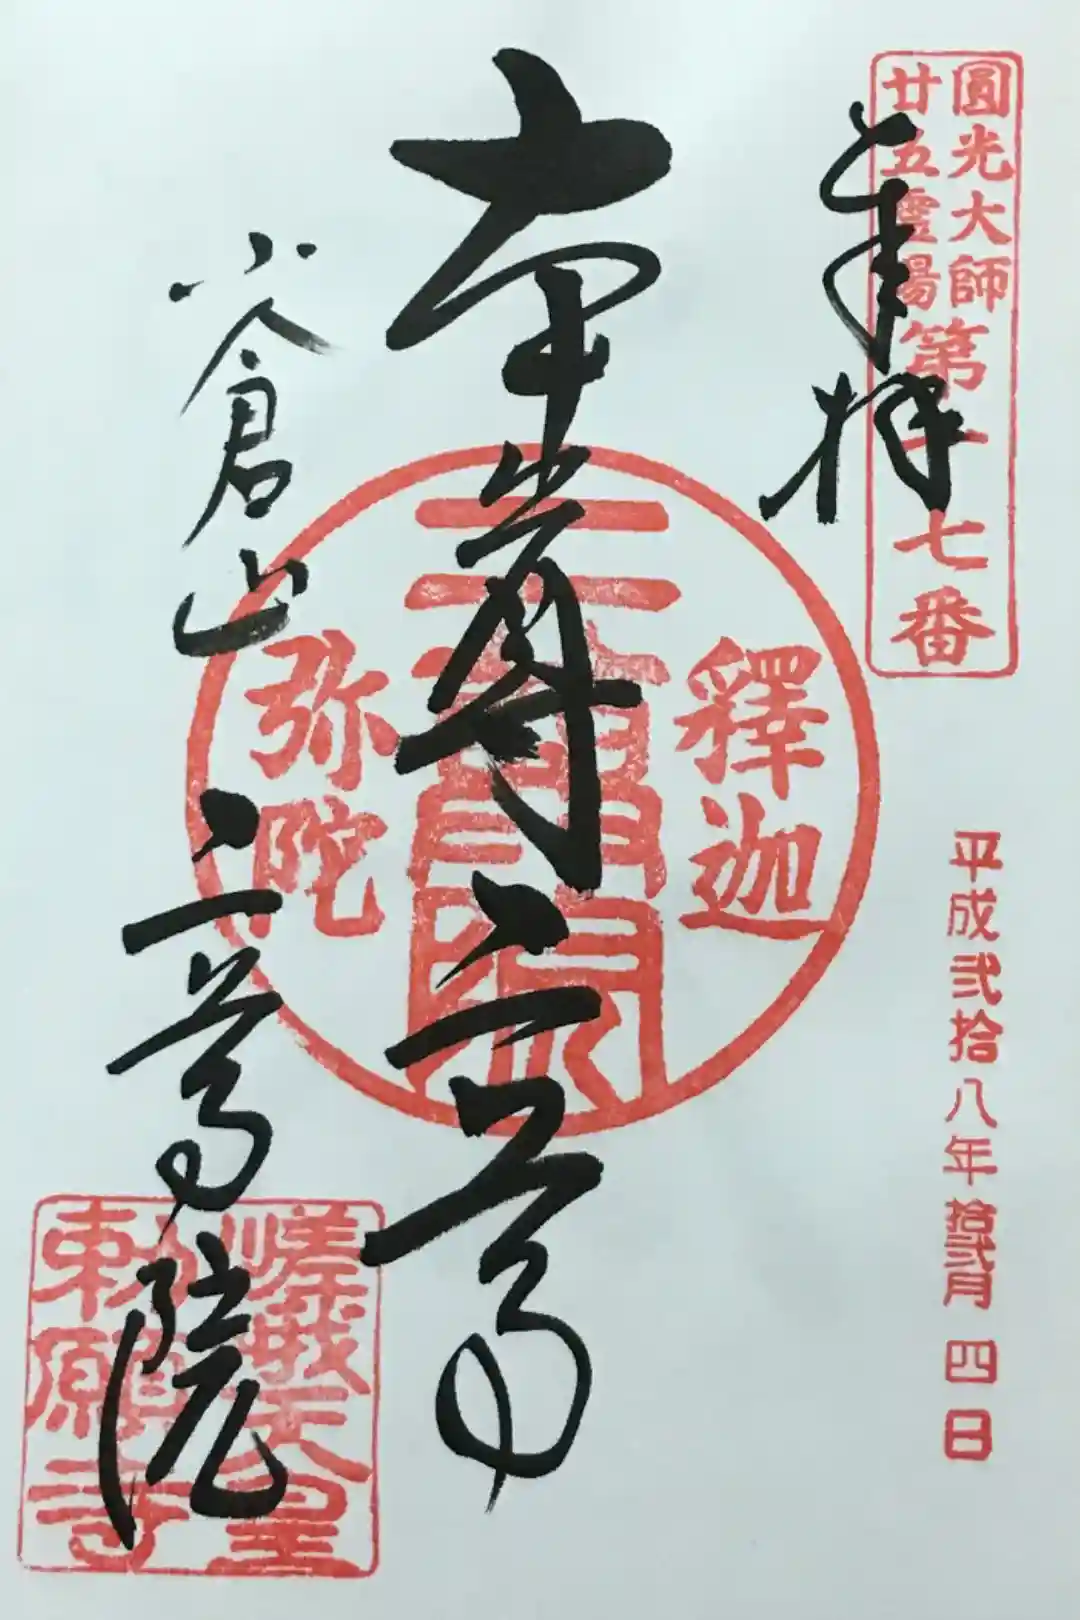 圓光大師
廿五靈場
第十七番
奉拝
平成弐拾八年拾弐月四日
本尊二尊
釋迦
弥陀
二尊院
小倉山
二尊院
嵯峨天皇
勅願寺